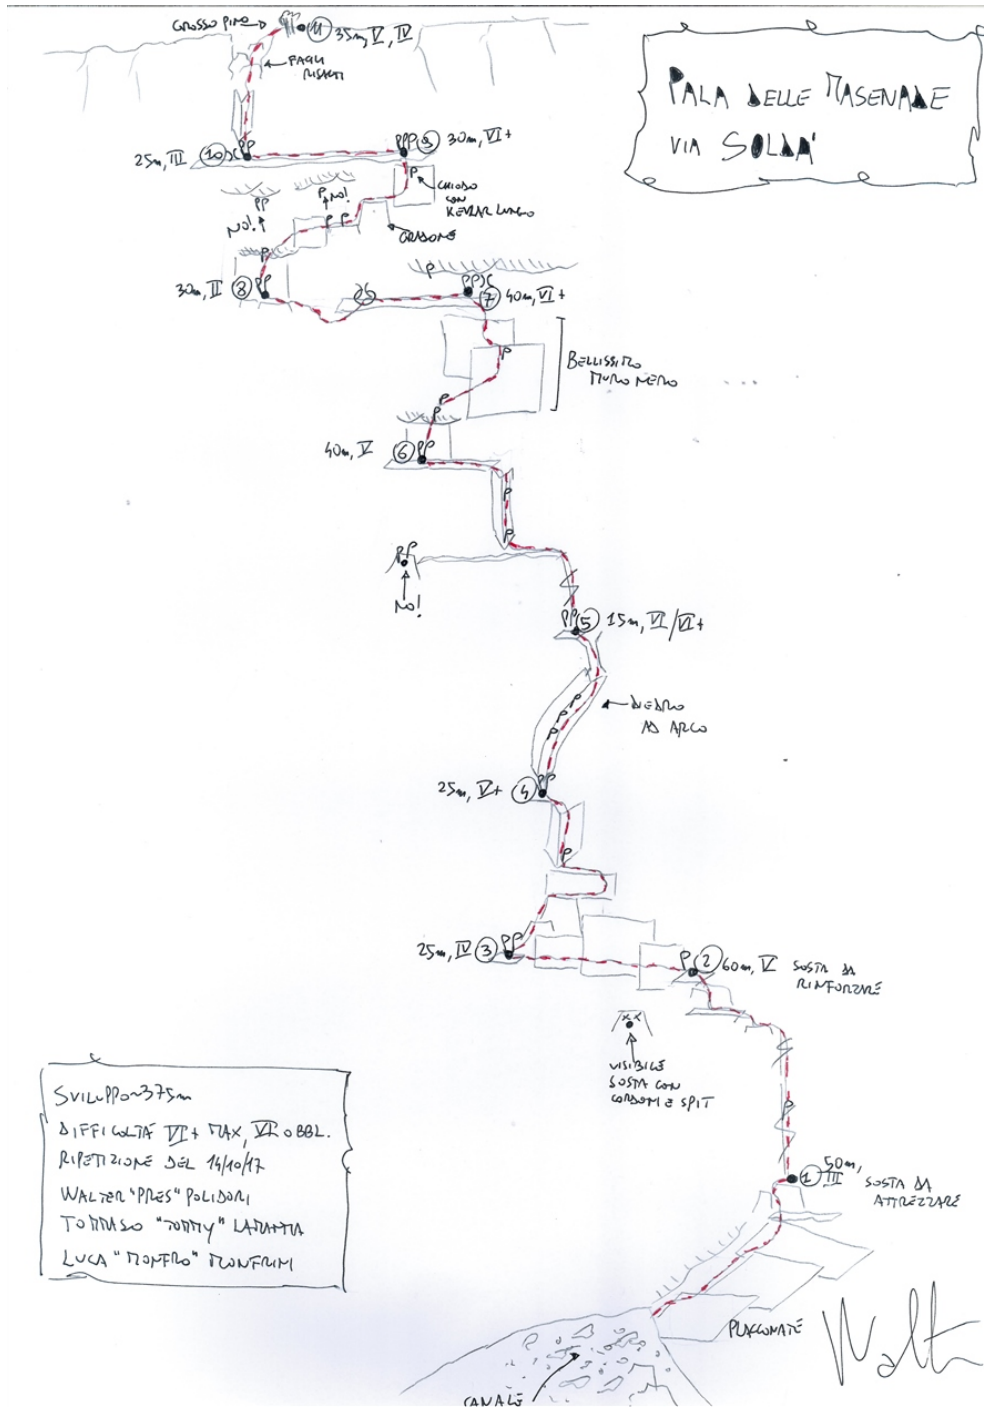 GROSSO PINO
11 35m, V, IV
FACILI
RISALTI
PALA DELLE MASENADE
VIA SOLDA'
PP
PPP
9 30m, VI+
25m, III 10
P
CHIODO
CON
KEVLAR LUNGO
PP
NO!
P NO!
P P
GRADONE
P
P
30m, II 8 PP
PP
7 40m, VI+
P
BELLISSIMO
MURO NERO
P
P
40m, V 6 PP
P
P
PP
NO!
PP 5 15m, VI/VI+
DIEDRO
AD ARCO
P
P
P
P
25m, V+ 4 PP
P
25m, IV 3 PP
P 2 60m, V SOSTA DA
RINFORZARE
xx
VISIBILE
SOSTA CON
CORDONI E SPIT
P
1 50m,
III SOSTA DA
ATTREZZARE
SVILUPPO ~375m
DIFFICOLTÀ VI+ MAX, VI OBBL.
RIPETIZIONE DEL 14/10/17
WALTER "PRES" POLIDORI
TOMMASO "TOMMY" LAMANTIA
LUCA "MONFRO" MONFRINI
PLACCONATE
CANALE
Walter